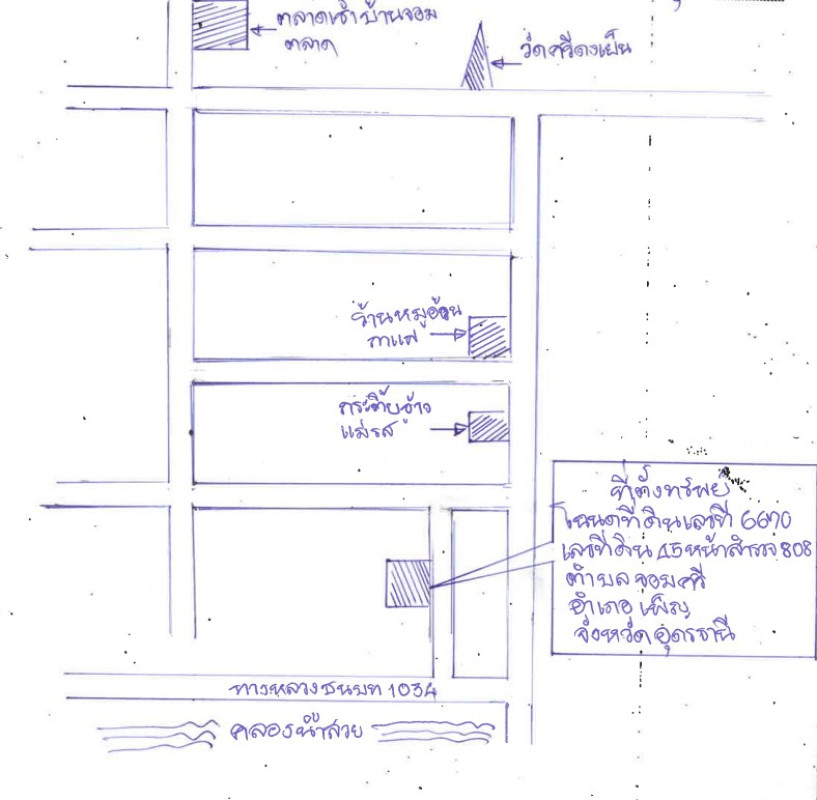 ตลาดเช้าบ้านจอม
ตลาด
วัดศรีดงเย็น
ร้านหมูอ้วน
กาแฟ
กระติ๊บข้าว
แม่รส
ที่ตั้งทรัพย์
โฉนดที่ดินเลขที่ 6670
เลขที่ดิน 45 หน้าสำรวจ 808
ตำบล จอมศรี
อำเภอ เพ็ญ
จังหวัด อุดรธานี
ทางหลวงชนบท 1034
คลองน้ำสวย